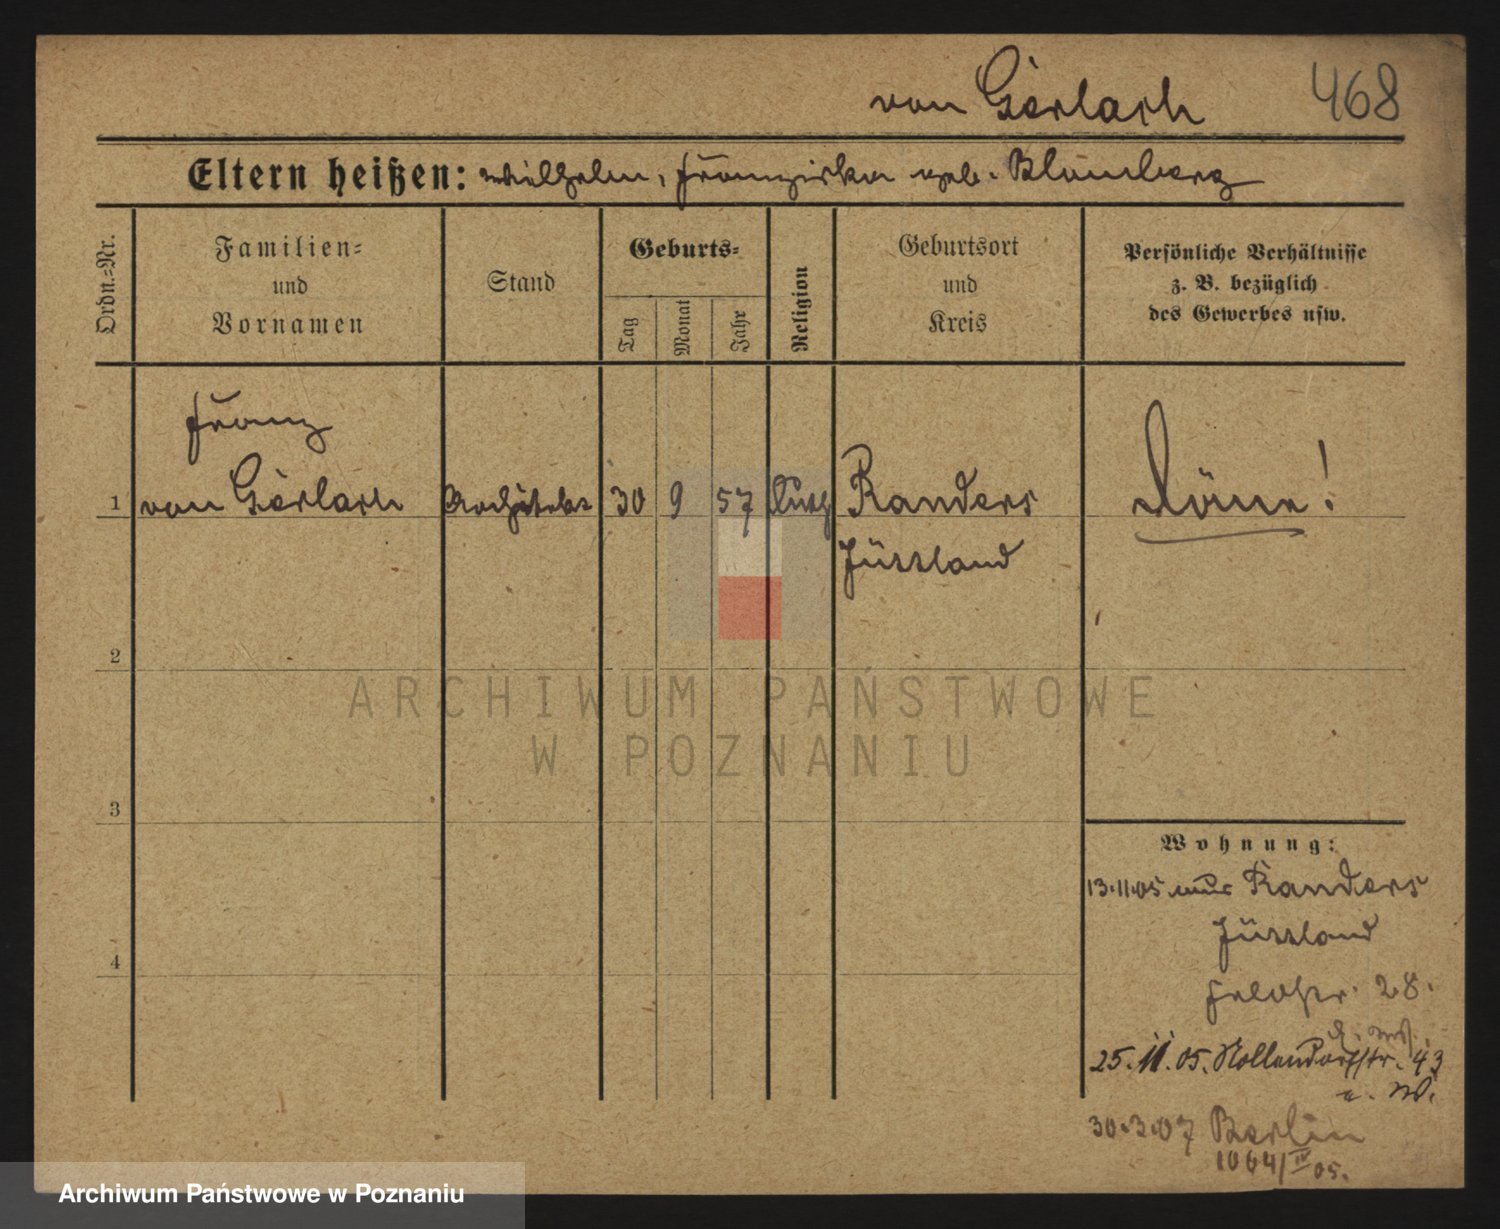 von Gerlach 468
Eltern heißen: Wilhelm, Franziska geb. Blomberg
Ordn.=Nr.
Familien=
und
Vornamen
Stand
Geburts=
Tag
Monat
Jahr
Religion
Geburtsort
und
Kreis
Persönliche Verhältnisse
z. B. bezüglich
des Gewerbes usw.
Franz
1 von Gerlach Architekt 30 9 57 Luth Randers Däne!
Jüttland
2
3
4
Wohnung:
13.11.05 aus Randers
Jüttland
28.
25.11.05. Nollendorfstr. 43
30.3.07 Berlin
1064/IV 05.
ARCHIWUM PAŃSTWOWE
W POZNANIU
Archiwum Państwowe w Poznaniu